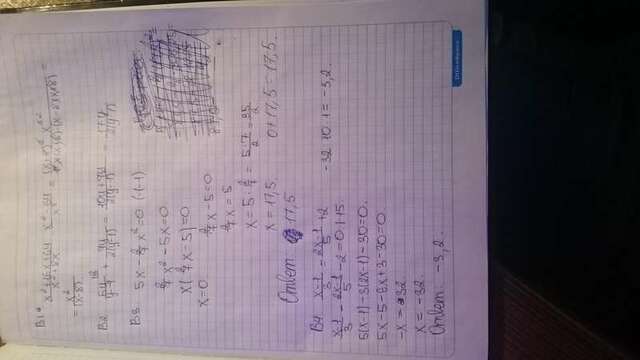 B1. (x²+16x+64)/(x²+8x) : (x²-64)/x³ = (x+8)² x³ / x(x+8)·(x-8)(x+8) =
= x²/(x-8)
B2 5y/(y-1) + 7y/2(y-1) = (10y+7y)/2(y-1) = 17y/2(y-1)
B3 5x - 2/7 x² = 0 ·(-1)
2/7 x² - 5x = 0
x(2/7 x - 5) = 0
x = 0
2/7 x - 5 = 0
2/7 x = 5
x = 5 : 2/7 = 5·7/2 = 35/2
x = 17,5. 0+17,5 = 17,5.
Ответ: 17,5
B4 (x-1)/3 = (2x-1)/5 + 2
(x-1)/3 - (2x-1)/5 - 2 = 0 |·15
-32 : 10 · 1 = -3,2.
5(x-1) - 3(2x-1) - 30 = 0.
5x - 5 - 6x + 3 - 30 = 0.
-x = 32
x = -32.
Ответ: -3,2.